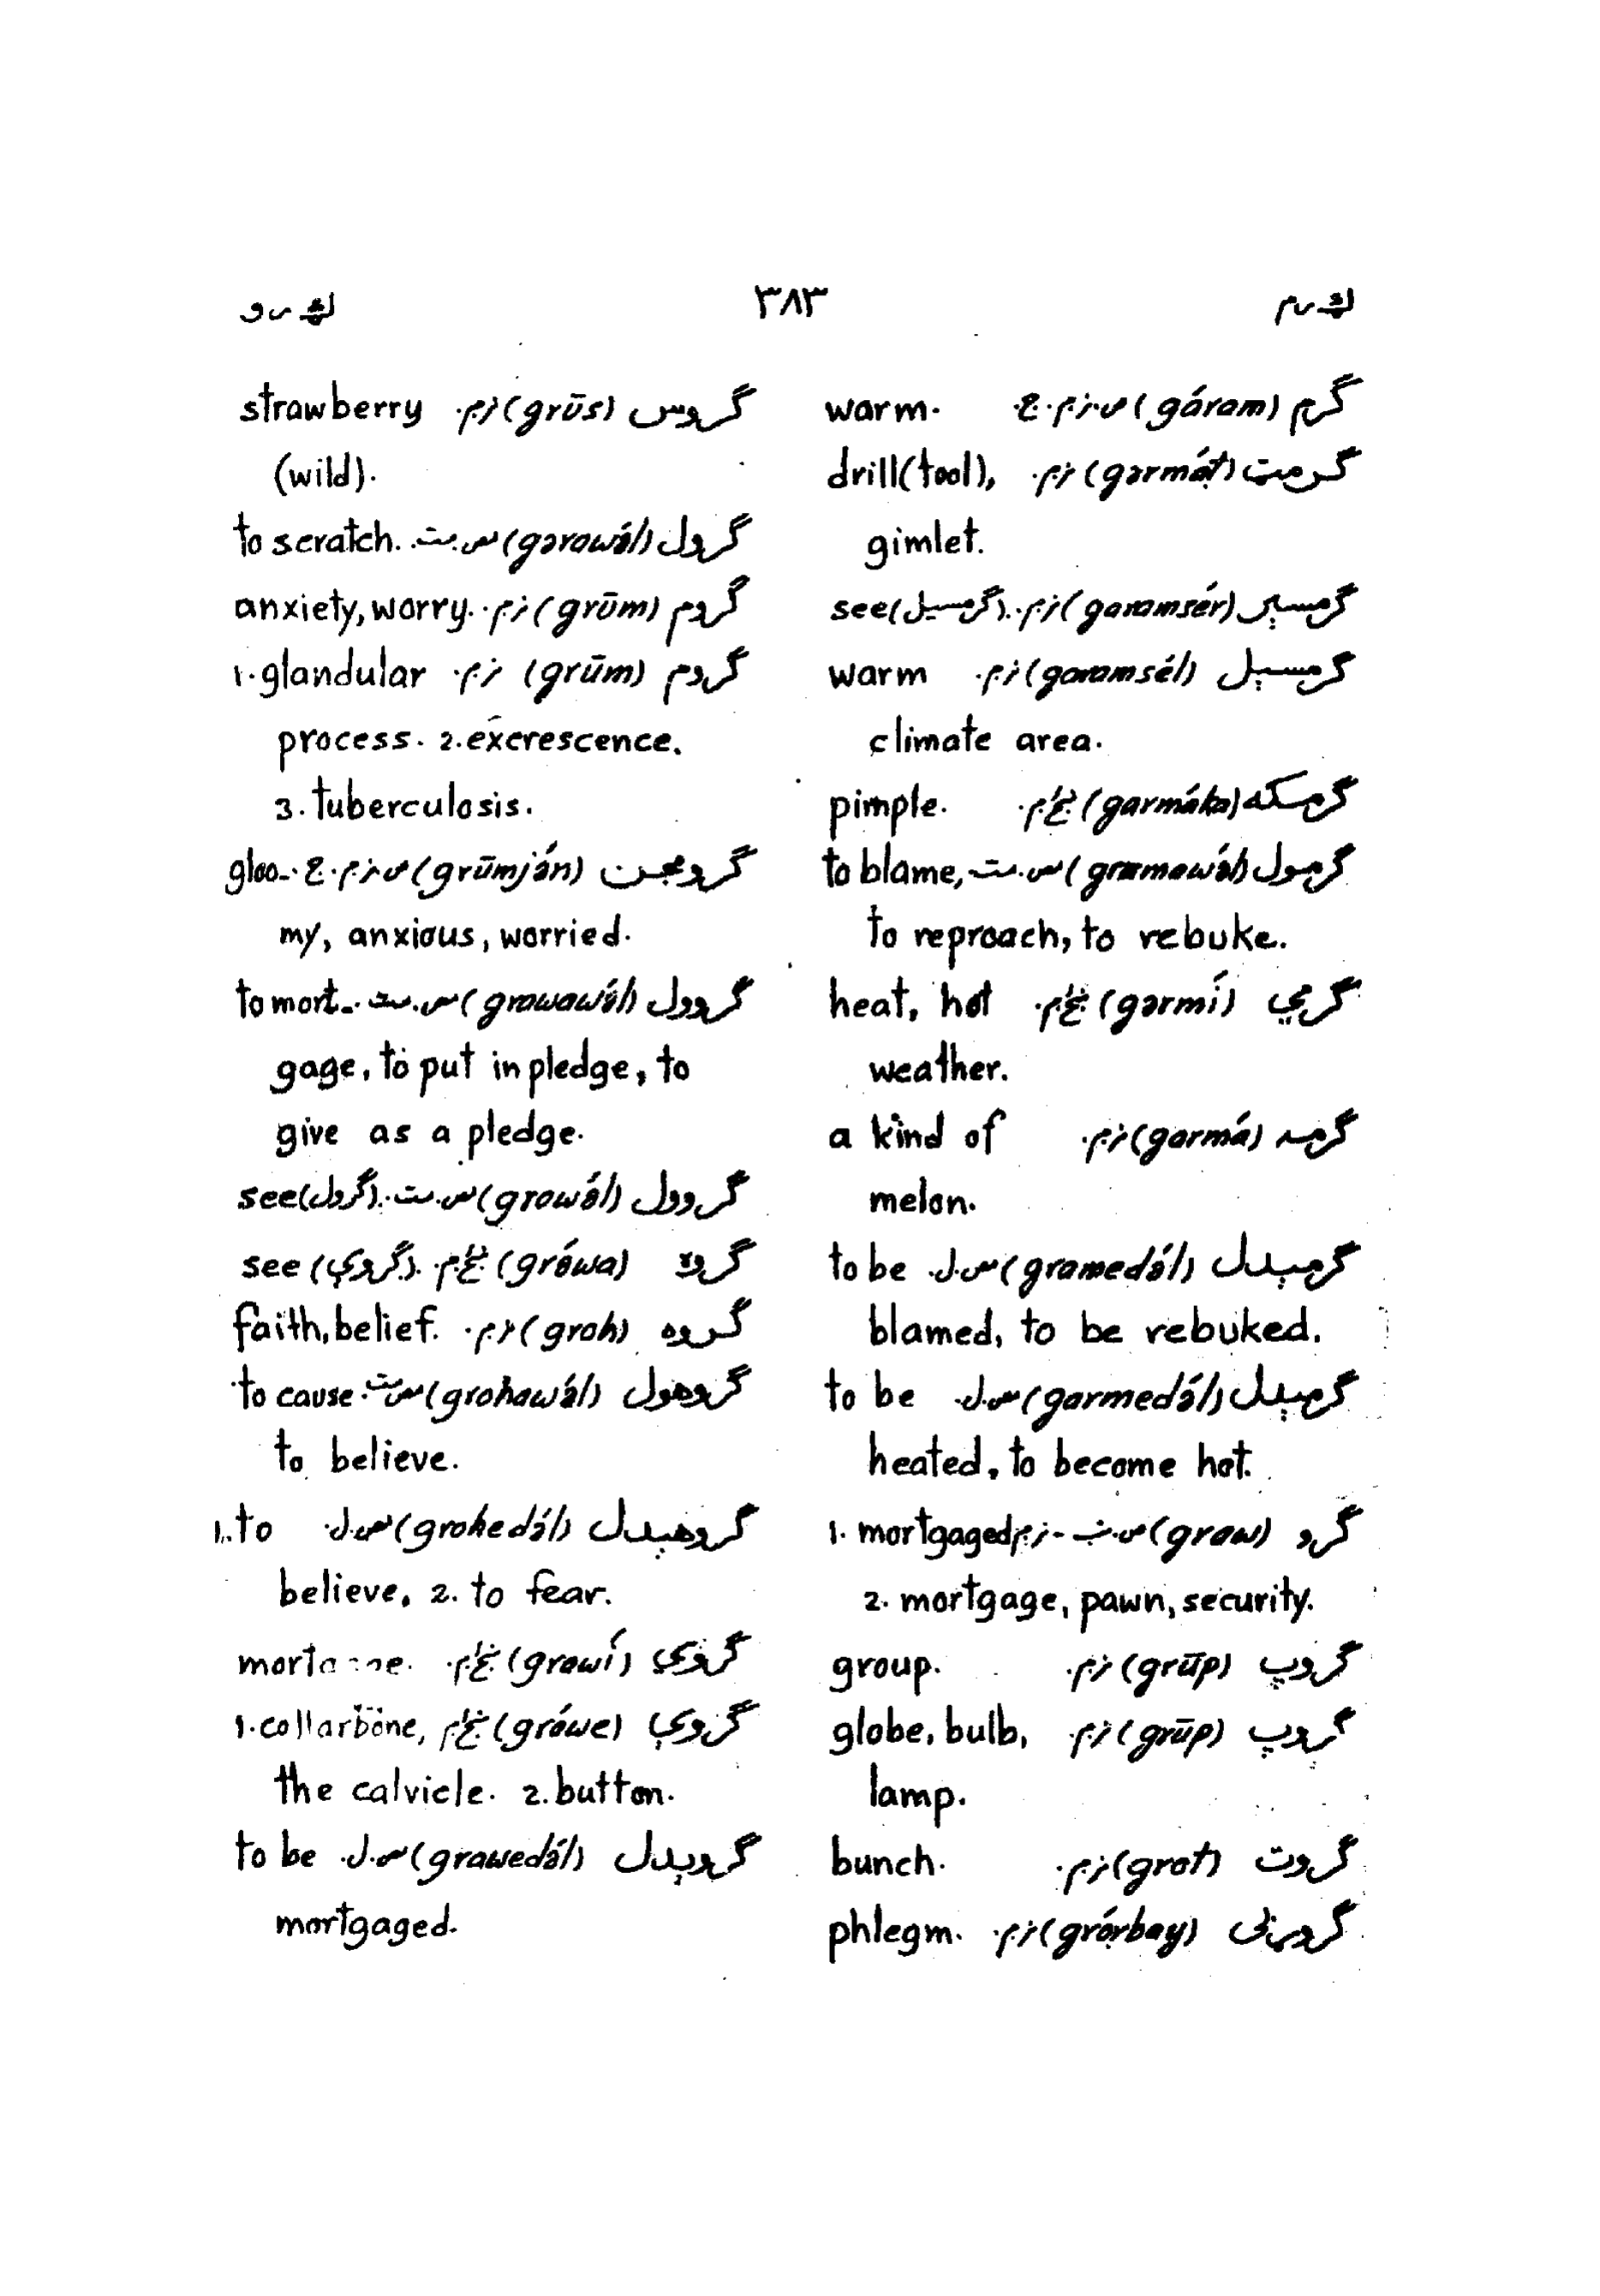 ګ ـ ر م ۳۸۳ ګ ـ ر و
ګرم (gáram) ص.نر.م.ج. warm.
ګرمټ (gərmáṭ) نر.م. drill(tool),
gimlet.
ګرمسېر (garamsér) نر.م. see(ګرمسېل).
ګرمسېل (garamsél) نر.م. warm
climate area.
ګرمکه (garmáka) ښځ.م. pimple.
گرمول (gramawə́l) س.مت. to blame,
to reproach, to rebuke.
ګرمي (garmí) ښځ.م. heat, hot
weather.
ګرمه (garmá) نر.م. a kind of
melon.
ګرمېدل (gramedə́l) س.ل. to be
blamed, to be rebuked.
ګرمېدل (garmedə́l) س.ل. to be
heated, to become hot.
ګرو (graw) ص.ن - نر.م 1. mortgaged
2. mortgage, pawn, security.
ګروپ (grūp) نر.م. group.
ګروپ (grūp) نر.م. globe, bulb,
lamp.
ګروټ (groṭ) نر.م. bunch.
(gróṛbay) نر.م. phlegm.
ګروس (grūs) نر.م. strawberry
(wild).
ګرول (gərawə́l) س.مت. to scratch.
ګروم (grūm) نر.م. anxiety, worry.
ګروم (grūm) نر.م. 1. glandular
process. 2. excrescence.
3. tuberculosis.
ګرومجن (grūmján) ص.نر.م.ج. gloo-
my, anxious, worried.
ګروول (grawawə́l) س.مت. to mort-
gage, to put in pledge, to
give as a pledge.
ګروول (growə́l) س.مت. see(ګرول).
ګروه (grówa) ښځ.م. see(ګروې).
ګروه (groh) نر.م. faith, belief.
ګروهول (grohawə́l) س.مت. to cause
to believe.
ګروهېدل (grohedə́l) س.ل. 1. to
believe, 2. to fear.
ګروي (grawí) ښځ.م.
ګروې (grówe) ښځ.م 1. collarbone,
the calvicle. 2. button.
ګروېدل (grawedə́l) س.ل. to be
mortgaged.